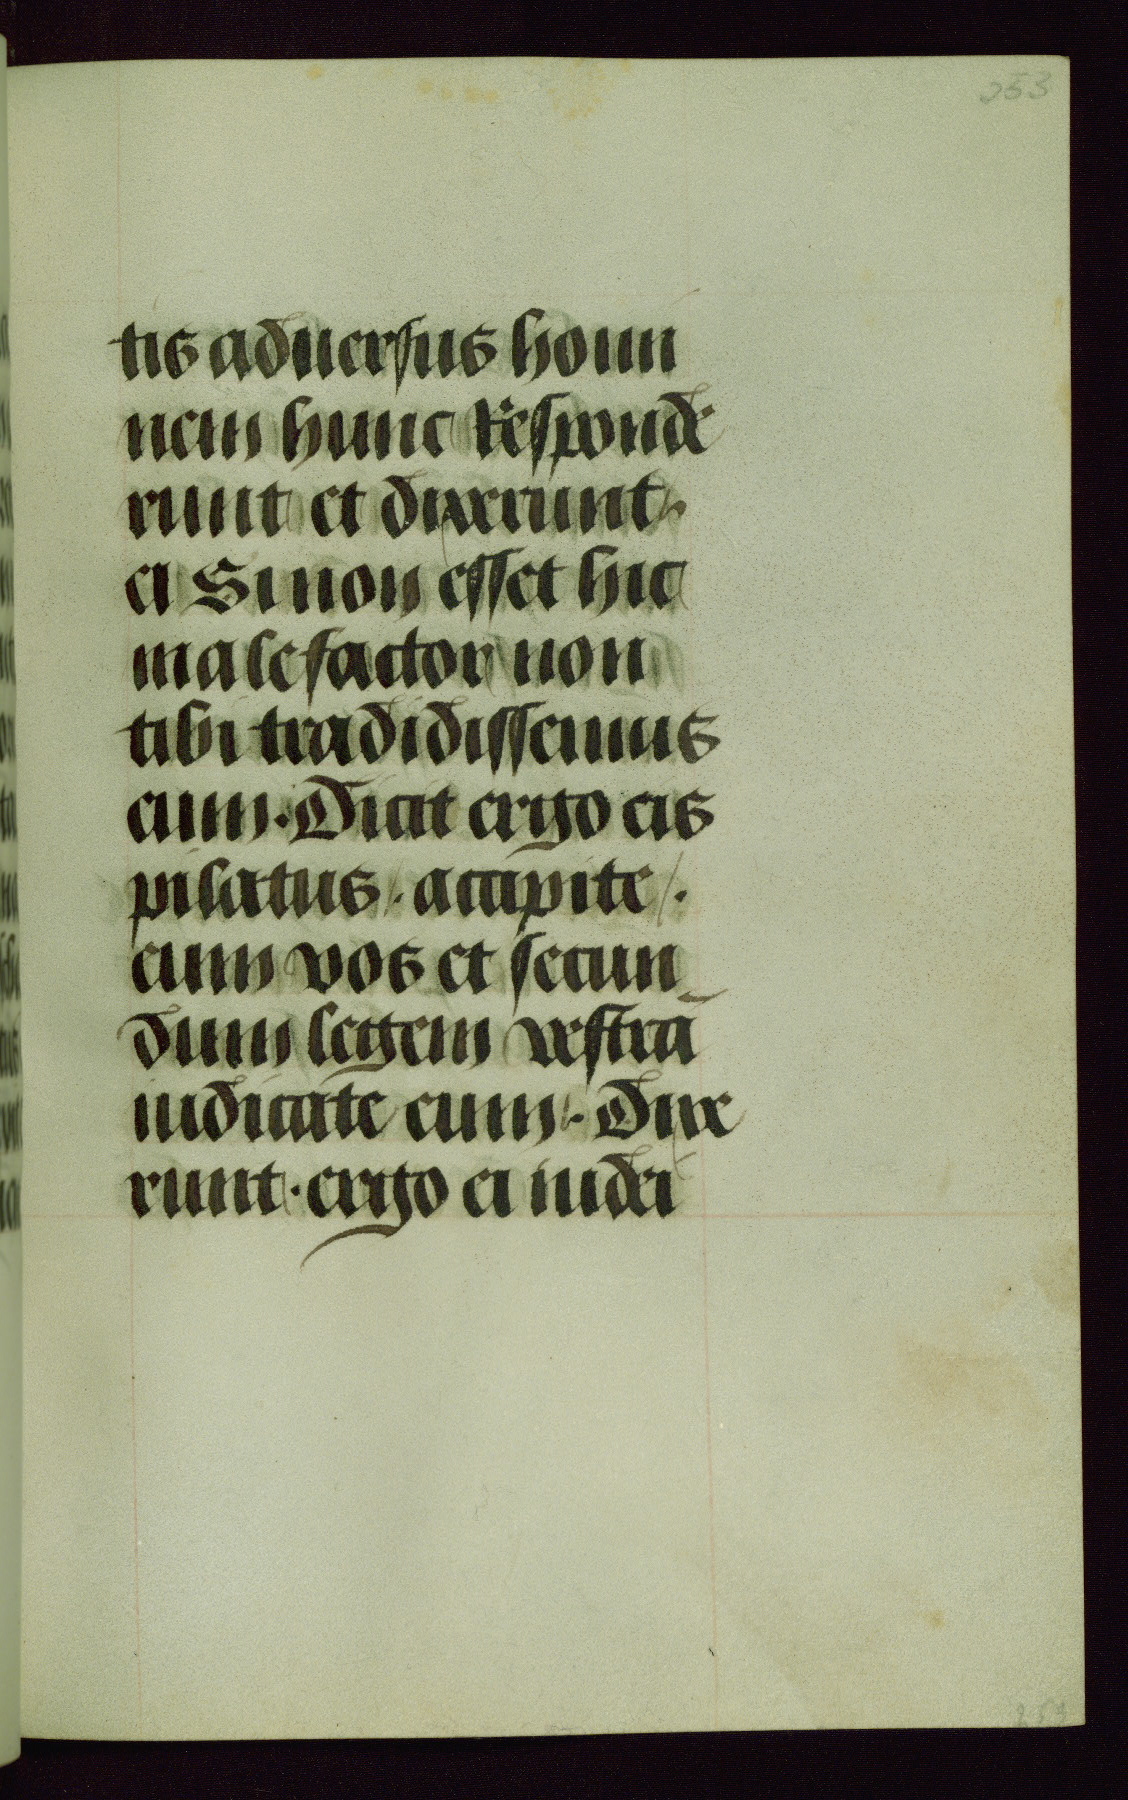 253
tis aduersus homi
nem hunc Responde
runt et dixerunt.
ei Si non esset hic
malefactor non
tibi tradidissemus
eum. Dicit ergo eis
pilatus. accipite.
eum vos et secun
dum legem vestrā
iudicate eum. Dixe
runt. ergo ei iudei